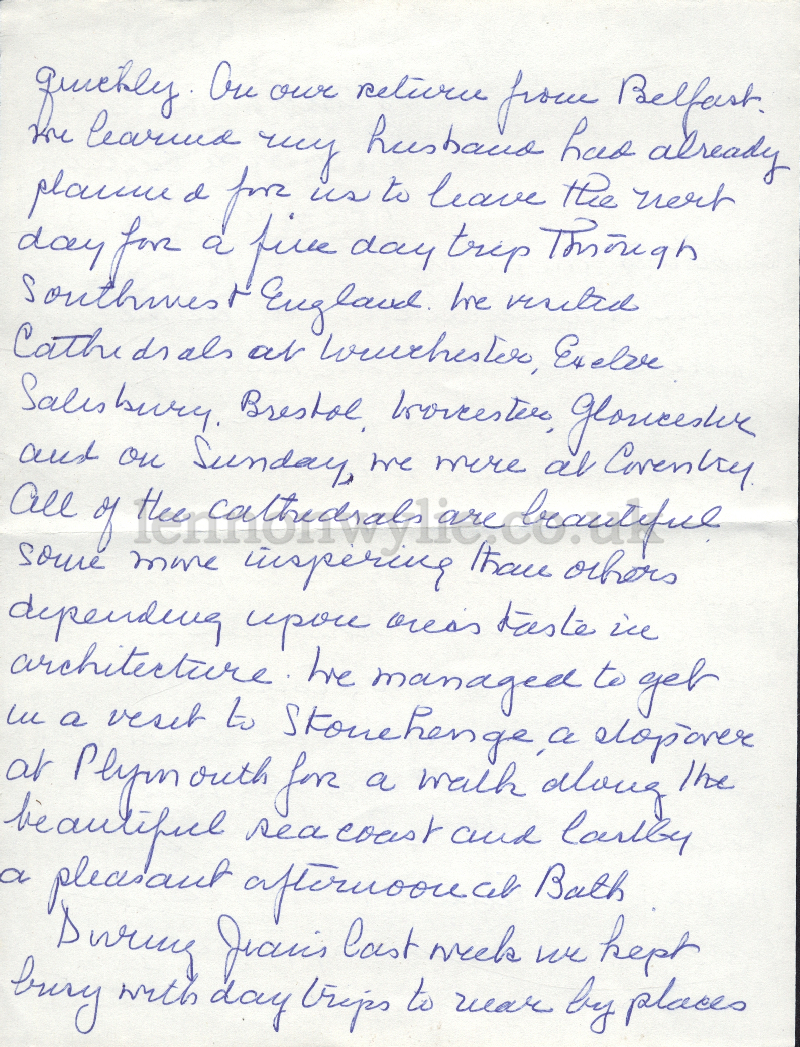 quickly. On our return from Belfast.
We learned my husband had already
planned for us to leave the next
day for a five day trip Through
Southwest England. We visited
Cathedrals at Winchester, Exeter
Salisbury, Bristol, Worcester, Gloucester
and on Sunday, we were at Coventry.
All of the cathedrals are beautiful
lennonwylie.co.uk
some more inspiring than others
depending upon one's taste in
architecture. We managed to get
in a visit to Stonehenge, a stopover
at Plymouth for a walk along the
beautiful seacoast and lastly
a pleasant afternoon at Bath
During Jean's last week we kept
busy with day trips to near by places